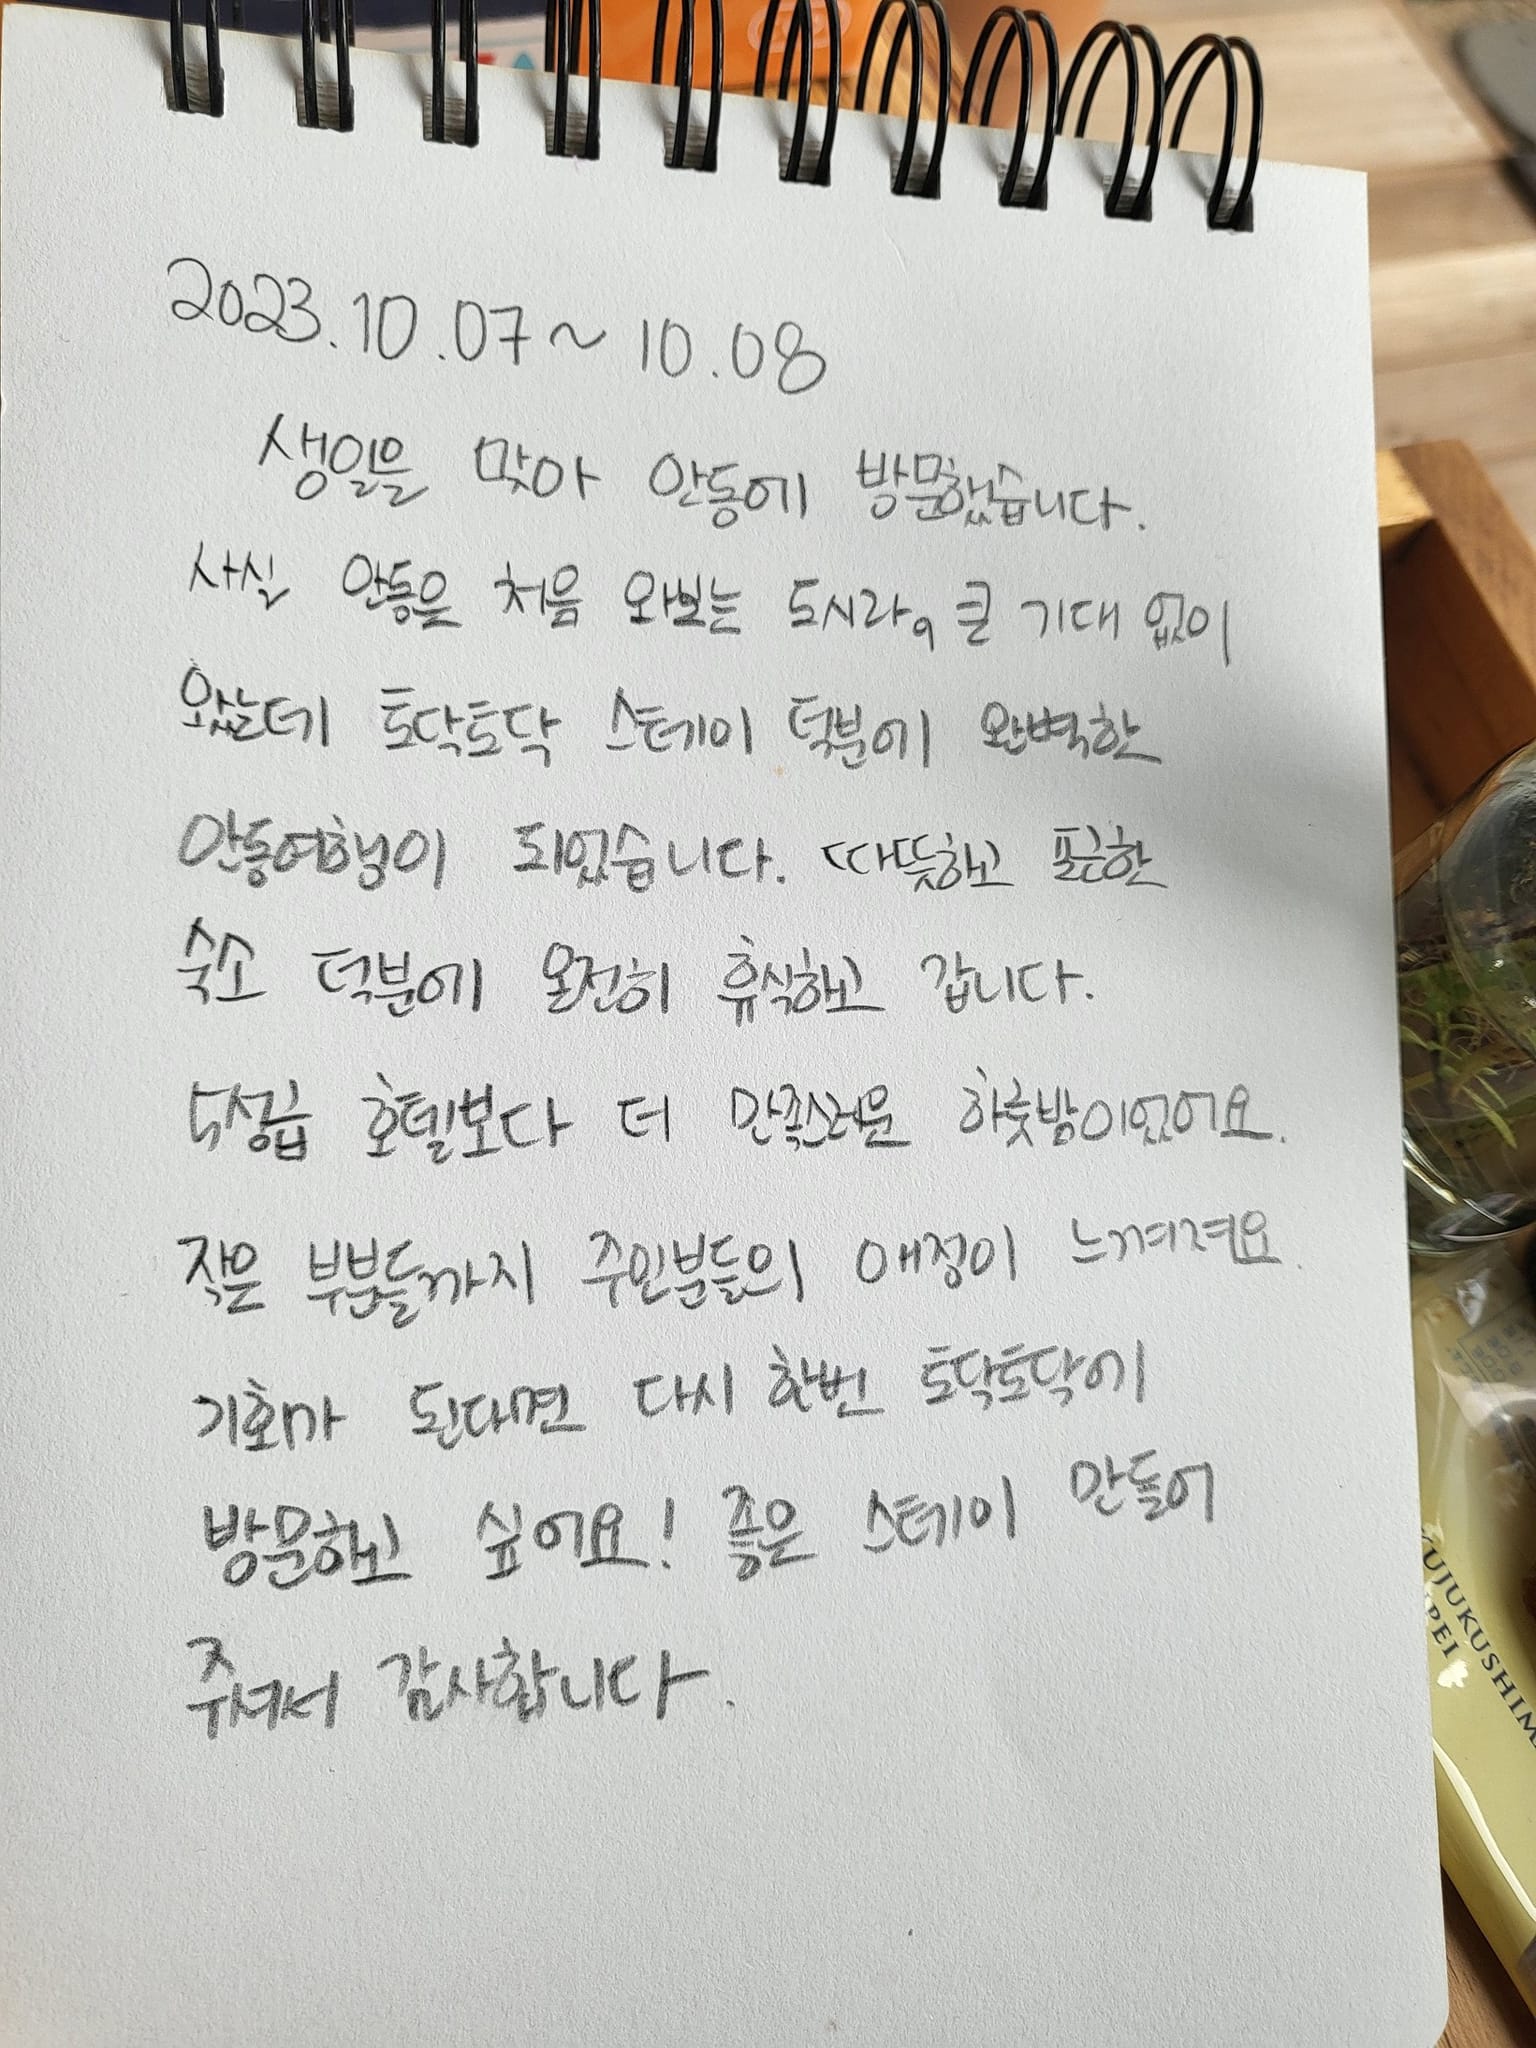 2023.10.07 ~ 10.08
생일을 맞아 안동에 방문했습니다.
사실 안동은 처음 와보는 도시라, 큰 기대 없이
왔는데 토닥토닥 스테이 덕분에 완벽한
안동여행이 되었습니다. 따뜻하고 포근한
숙소 덕분에 온전히 휴식하고 갑니다.
5성급 호텔보다 더 만족스러운 하룻밤이었어요.
작은 부분들까지 주인분들의 애정이 느껴져요.
기회가 된다면 다시 한번 토닥토닥에
방문하고 싶어요! 좋은 스테이 만들어
주셔서 감사합니다.